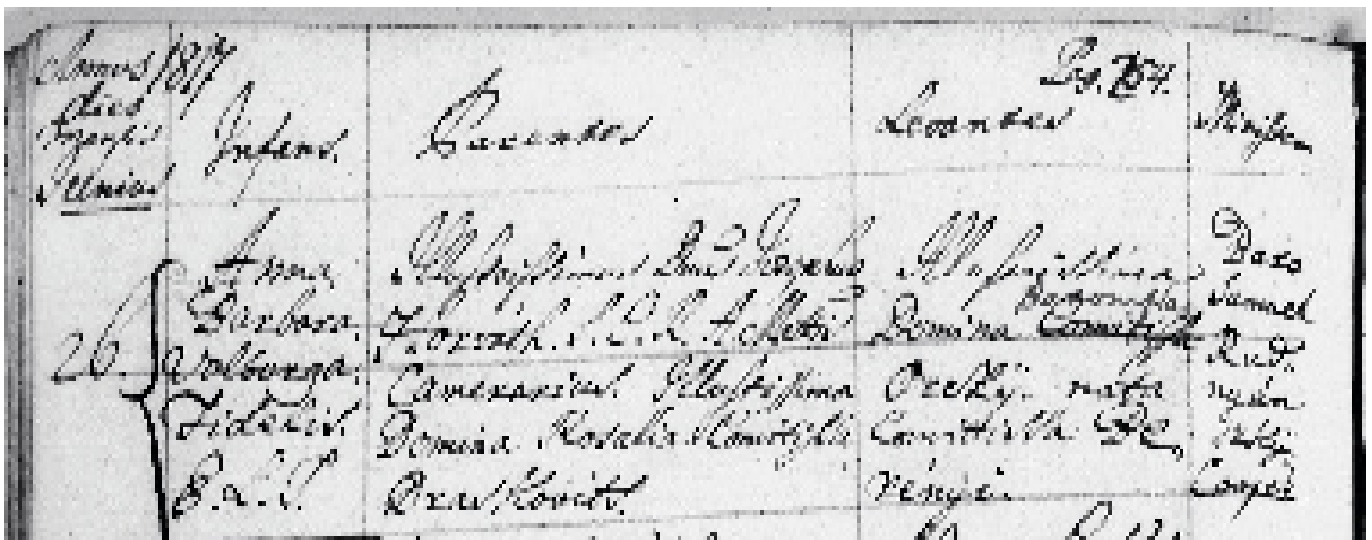 Annus 1817
dies
Junius
Infans.
Parentes
Pag. 754.
Levantes
26.
Anna
Barbara
Walburga
Fidelis.
P. L. S.
Illustrissimus Dnus
Horváth. S. C. R. A. Mattis
Camerarius Illustrissima
Domina Rosalia Comitissa
Draskovits.
Illustrissima
baronissa
Domina Comitissa
Orczÿ. nata
Comitissa Be,
rényi.
Daso
Samuel
Rud,
nyán
szkÿ
Cooper